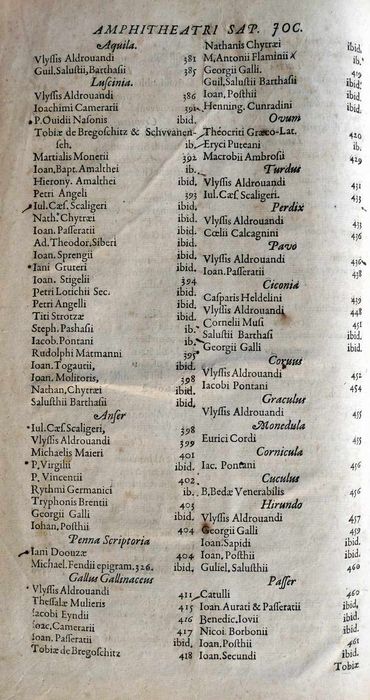 AMPHITHEATRI SAP. JOC.
Aquila.
Vlyssis Aldrouandi 381
Guil. Salustii, Barthasii 385
Luscinia.
Vlyssis Aldrouandi 386
Ioachimi Camerarii 391
P. Ouidii Nasonis ibid.
Tobiæ de Bregoschitz & Schvvanen-
seh. ib.
Martialis Monerii 392
Ioan, Bapt. Amalthei ib.
Hierony. Amalthei ibid.
Petri Angeli 393
Iul. Cæs. Scaligeri ibid.
Nath. Chytræi ibid.
Ioan. Passeratii ibid.
Ad. Theodor, Siberi ibid.
Ioan. Sprengii ibid.
Iani Gruteri ibid.
Ioan. Stigelii 394
Petri Lotichii Sec. ibid.
Petri Angelli ibid.
Titi Strotzæ ibid.
Steph. Pashasii ib.
Iacob. Pontani ib.
Rudolphi Matmanni 395
Ioan. Togautii, ibid.
Ioan. Molitoris, 398
Nathan, Chytræi ibid.
Salusthii Barthasii ibid.
Anser
Iul. Cæs. Scaligeri, 398
Vlyssis Aldrouandi 399
Michaelis Maieri 401
P. Virgilii ibid.
P. Vincentii 402
Rythmi Germanici ib.
Tryphonis Brentii 403
Georgii Galli ibid.
Iohan, Posthii 404
Penna Scriptoria
Iani Doouzæ 404
Michael. Fendii epigram. 326. ibid,
Gallus Gallinaceus
Vlyssis Aldrouandi 411
Thessalæ Mulieris 415
Iacobi Eyndii 416
Ioac, Camerarii 417
Ioan. Passeratii ibid,
Tobiæ de Bregoschitz 418
Nathanis Chytræi ibid.
M. Antonii Flaminii ib.
Georgii Galli. 419
Guil. Salustii Barthasii ibid.
Ioan, Posthii ibid.
Henning. Cunradini ibid.
Ovum
Theocriti Græco-Lat. 420
Eryci Puteani ib.
Macrobii Ambrosii 429
Turdus
Vlyssis Aldrouandi 431
Iul. Cæs. Scaligeri. ibid.
Perdix
Vlyssis Aldrouandi 433
Cœlii Calcagnini ibid.
Pavo
Vlyssis Aldrouandi 436
Ioan. Passeratii 438
Ciconia
Casparis Heldelini 439
Vlyssis Aldrouandi 448
Cornelii Musi 451
Salustii Barthasi ibid.
Georgii Galli ibid.
Corvus
Vlyssis Aldrouandi 452
Iacobi Pontani 454
Graculus
Vlyssis Aldrouandi 455
Monedula
Eurici Cordi 455
Cornicula
Iac. Pontani 456
Cuculus
B, Bedæ Venerabilis 456
Hirundo
Vlyssis Aldrouandi 457
Georgii Galli 459
Ioan. Sapidi ibid.
Ioan, Posthii ibid.
Guliel, Salusthii 460
Passer
Catulli 460
Ioan Aurati & Passeratii ibid,
Benedic. Iovii ibid.
Nicoi. Borbonii ibid.
Ioan, Posthii 461
Ioan. Secundi ibid.
Tobiæ